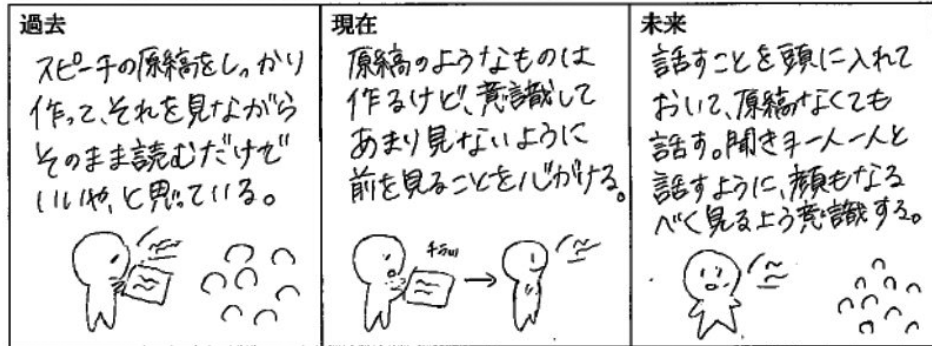 過去
スピーチの原稿をしっかり
作って、それを見ながら
そのまま読むだけで
いいや、と思っている。
現在
原稿のようなものは
作るけど、意識して
あまり見ないように
前を見ることを心がける。
チラッ
未来
話すことを頭に入れて
おいて、原稿なくても
話す。聞き手一人一人と
話すように、顔もなる
べく見るよう意識する。